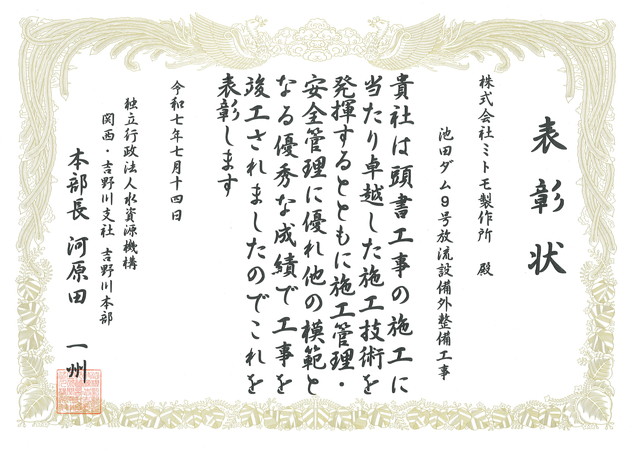 表彰状
株式会社ミトモ製作所 殿
池田ダム9号放流設備外整備工事
貴社は頭書工事の施工に
当たり卓越した施工技術を
発揮するとともに施工管理・
安全管理に優れ他の模範と
なる優秀な成績で工事を
竣工されましたのでこれを
表彰します
令和七年七月十四日
独立行政法人水資源機構
関西・吉野川支社 吉野川本部
本部長 河原田 一州